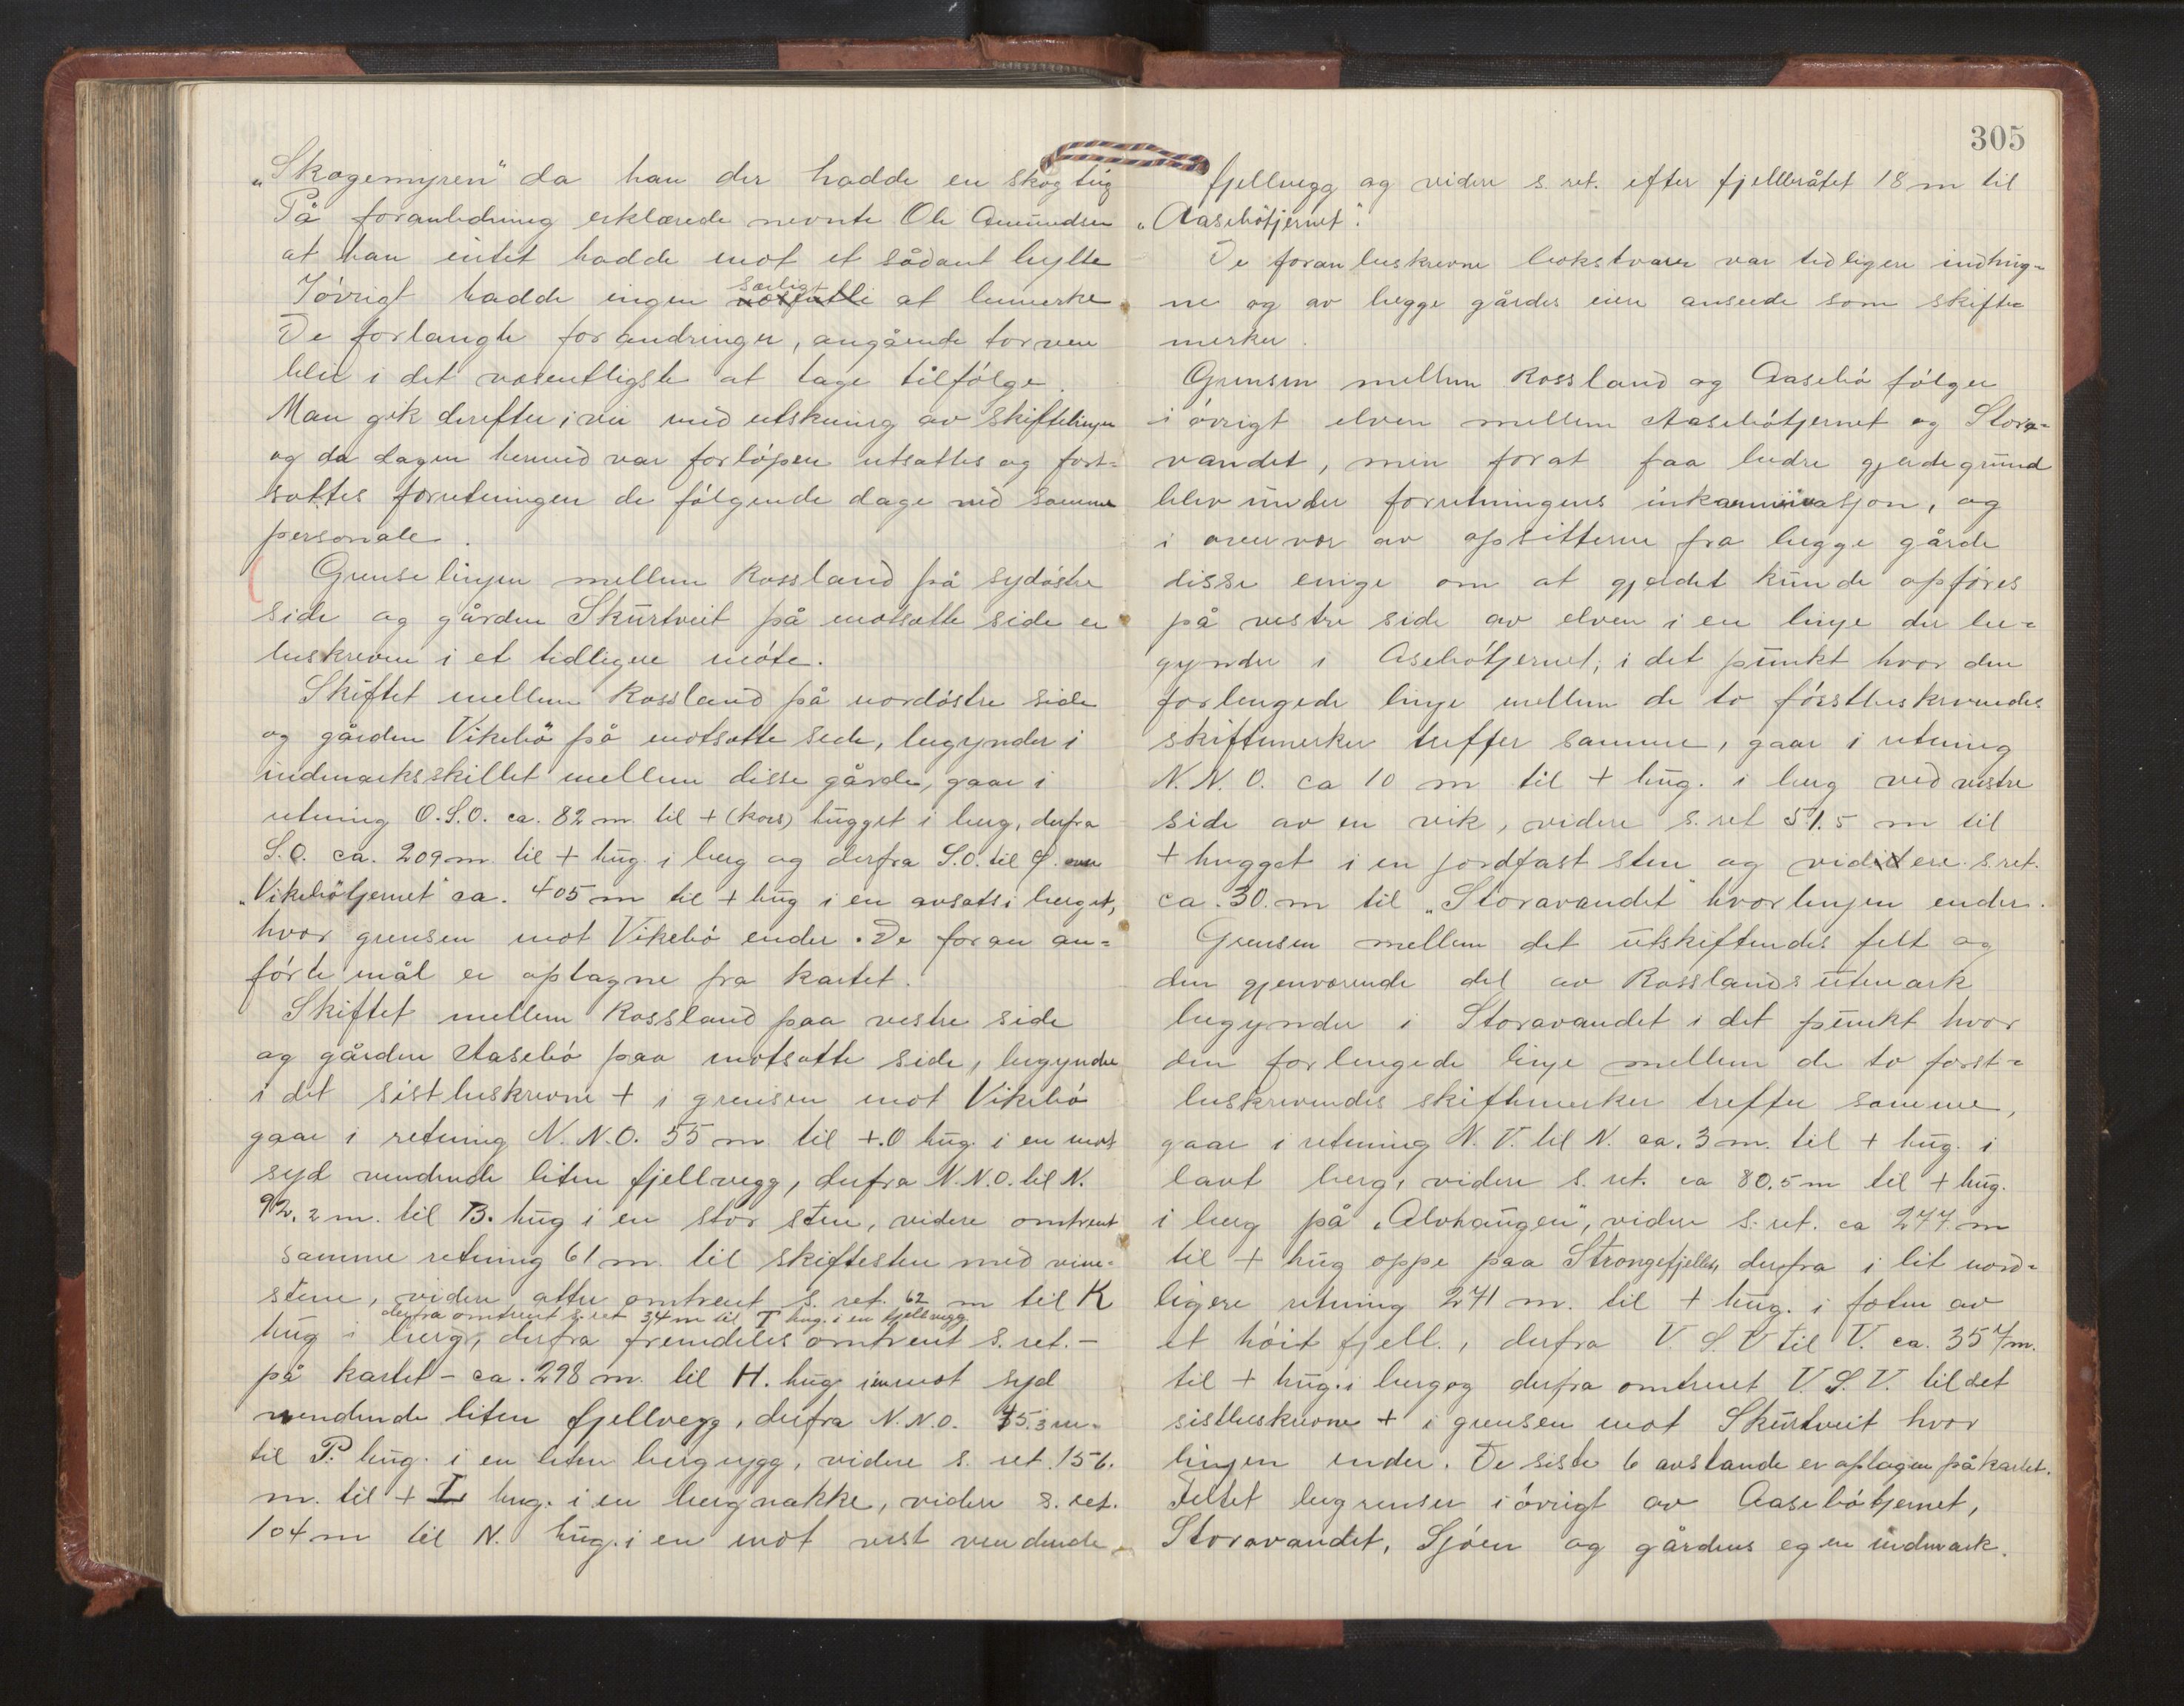 „Skogemyren" da han der hadde en skogteig
På foranledning erklærede nevnte Ole Amundsen
at han intet hadde imot et sådant bytte
Iövrigt hadde ingen særligt at bemerke
De forlangte forandringer, angående torven
blir i det væsentligste at tage tilfölge.
Man gik derefter ivei med utskuing av skiftelinjer
og da dagen hermed var forløpen utsattes og fort-
sattes forretningen de fölgende dage med samme
personale.
Grenselinjen mellem Rossland på sydöstre
side og gården Skurtveit på motsatte side er
beskreven i et tidligere möte.
Skiftet mellem Rossland på nordöstre side
og gården Vikebö på motsatte side, begynder i
indmarksskillet mellem disse gårde, gaar i
retning O.S.O. ca. 82 m til + (kors) hugget i berg, derfra
S.O. ca. 209 m. til + hug. i berg og derfra S.O. til O. over
„Vikebötjernet" ca. 405 m til + hug i en avsats i berget,
hvor grensen mot Vikebö ender. De foran an-
förte mål er optagne fra kartet.
Skiftet mellem Rossland paa vestre side
og gården Aasebö paa motsatte side, begynder
i det sistbeskrevne + i grensen mot Vikebö
gaar i retning N.N.O. 55 m. til +.O hug. i en mot
syd vendende liten fjellvegg, derfra N.N.O. til N.
92,2 m. til B. hug i en stor sten, videre omtrent
samme retning 61 m. til skiftesten med vine-
stene, videre atter omtrent s. ret. 62 m til K
derfra omtrent s. ret 34 m til T hug. i en fjellvegg
hug i berg, derfra fremdeles omtrent s. ret. -
på kartet - ca. 298 m. til H. hug i en mot syd
vendende liten fjellvegg, derfra N.N.O. 75.3 m.
til P. hug. i en liten bergrygg, videre s. ret. 156.
m. til + I hug. i en bergnakke, videre s. ret.
104 m til N. hug. i en mot vest vendende
305
fjellvegg og videre s. ret. efter fjellbråtet 18 m til
„Aasebötjernet".
De foran beskrevne bokstaver var tidligere indhug-
ne og av begge gårdes eiere anseede som skifte
merker.
Grensen mellem Rossland og Aasebö fölger
i övrigt elven mellem Aasebötjernet og Stora-
vandet, men forat faa bedre gjerdegrund
blev under forretningens inkaminasjon, og
i overvær av opsitterne fra begge gårde
disse enige om at gjerdet kunde opföres
på vestre side av elven i en linje der be-
gynder i Asebötjernet, i det punkt hvor den
forlengede linje mellem de to förstbeskrevendes
skiftemerker treffer samme, gaar i retning
N.N.O. ca 10 m til + hug. i berg ved vestre
side av en vik, videre s. ret 51.5 m til
+ hugget i en jordfast sten og videre s. ret.
ca. 30. m til „Storavandet" hvor linjen ender.
Grensen mellem det utskiftendes felt og
den gjenværende del av Rosslands utmark
begynder i Storavandet i det punkt hvor
den forlengede linje mellem de to först-
beskrevendes skiftemerker treffer samme,
gaar i retning N.V. til N. ca. 3 m. til + hug. i
lavt berg, videre s. ret. ca 80.5 m til + hug.
i berg på „Alvhaugen", videre s. ret. ca 277 m
til + hug oppe paa Strongefjellet, derfra i lit nord-
ligere retning 271 m. til + hug. i foten av
et höit fjell., derfra V.S.V til V. ca. 357 m.
til + hug. i berg og derfra omtrent V.S.V. til det
sistbeskrevne + i grensen mot Skurtveit hvor
linjen ender. De siste 6 avstande er optagen på kartet.
Feltet begrenses iövrigt av Aasebötjernet,
Storavandet, Sjöen og gårdens egen indmark.